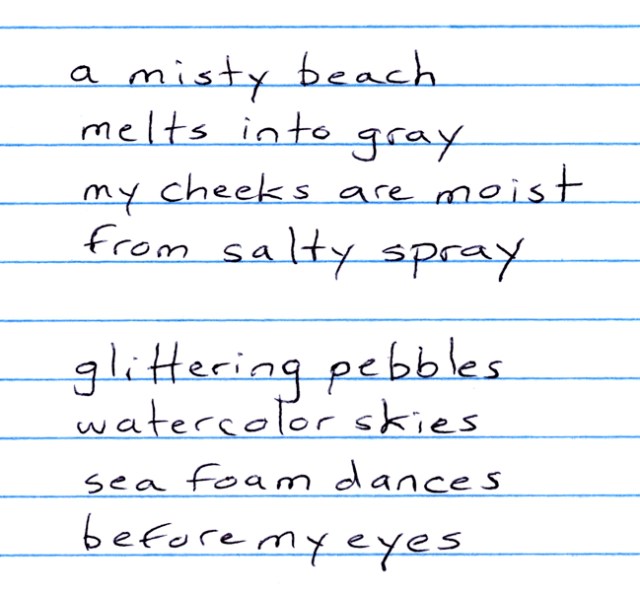 a misty beach
melts into gray
my cheeks are moist
from salty spray
glittering pebbles
watercolor skies
sea foam dances
before my eyes